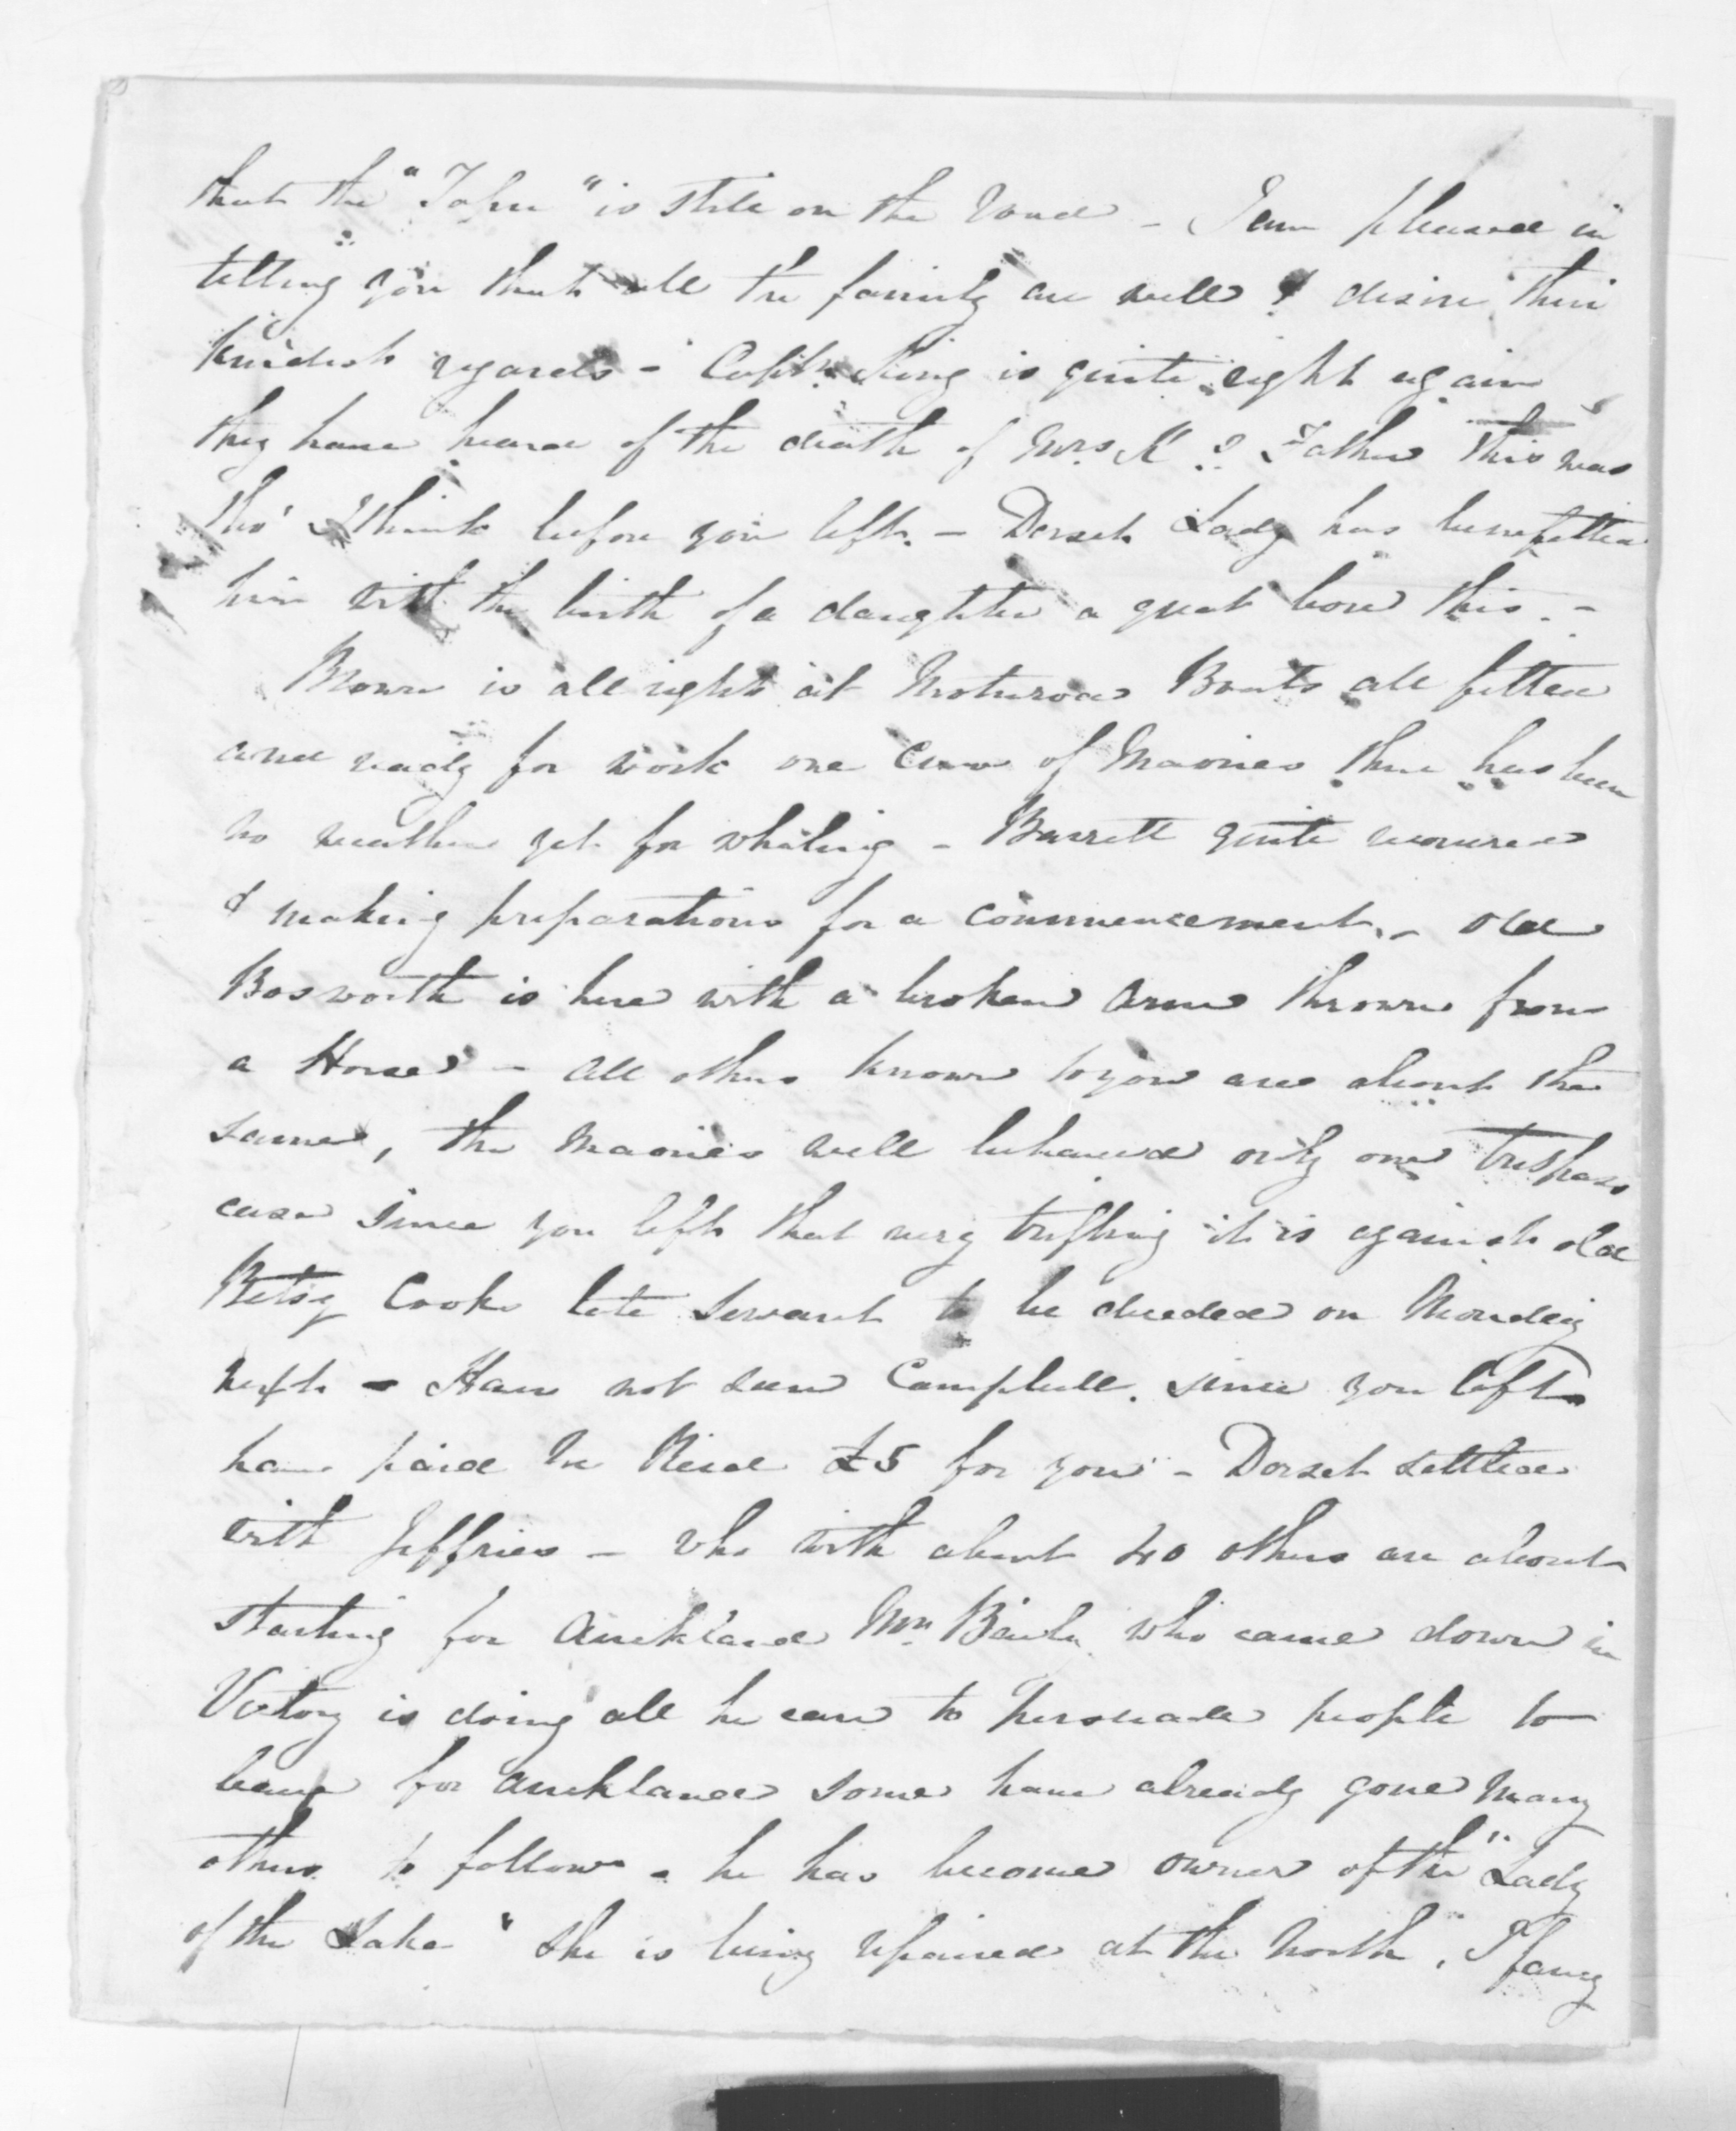 that the "John" is still on the - I am pleased in
telling you that all the family are well & desire their
kindest regards - Captn. King is quite right again
they have heard of the death of Mrs. K's Father this was
tho' I think before you left. - Dorset Lady has benefitted
him with the birth of a daughter a great bore this. -
Brown is all right at Moturoa Boats all fitted
and ready for work one Crew of Maories there has been
no weather yet for whaling - Barrett quite recovered
& making preparations for a commencement. - old
Bosworth is here with a broken arm thrown from
a Horse - all others known to you are about the
same, the Maories well behaved only one trespass
case since you left that very trifling it is against old
Betsy Cooke late servant to be decided on Monday
next - Have not seen Campbell. since you left
have paid £5 for you - Dorset settled
with Jeffries - who with about 40 others are about
starting for Auckland Mr. who came down in
Victory is doing all he can to persuade people to
leave for Auckland some have already gone many
others to follow - he has become owner of the "Lady
of the Lake" she is being repaired at the North, I fancy